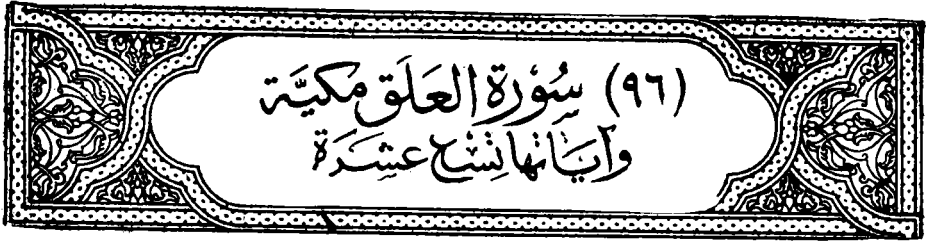 (٩٦) سُورَة العَلَق مكيَّة
وآيَاتها تِسْع عشَرَة